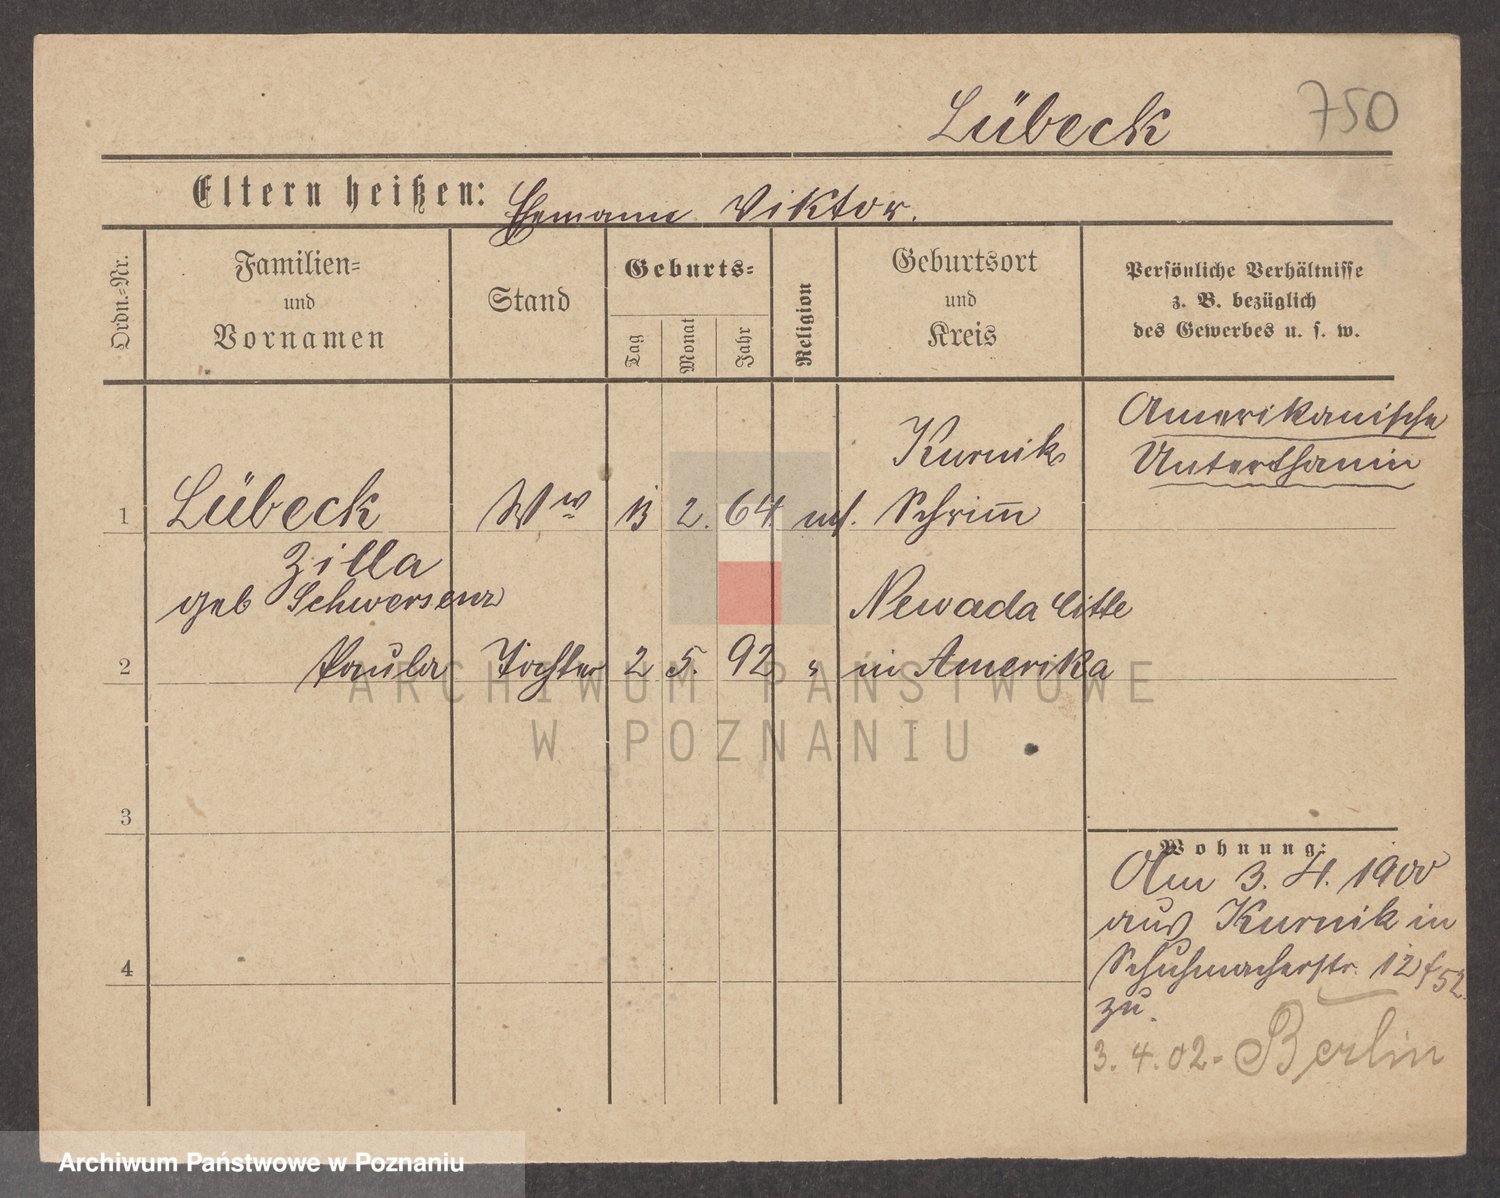 Lübeck 750
Eltern heißen: Ehemann Viktor.
Ordn.-Nr. Familien- und Vornamen Stand Geburts- Tag Monat Jahr Religion Geburtsort und Kreis Persönliche Verhältnisse z. B. bezüglich des Gewerbes u. s. w.
Amerikanische
Unterthanin
Kurnik
1 Lübeck Ww 13 2. 64 Schrimm
Zilla
geb Schwersenz
Newada Citte
2 Paula Tochter 2 5. 92 " in Amerika
3
Wohnung:
Am 3. 4. 1900
aus Kurnik in
4 Schuhmacherstr. 12 f 52
zu.
3. 4. 02 - Berlin
ARCHIWUM PAŃSTWOWE
W POZNANIU
Archiwum Państwowe w Poznaniu